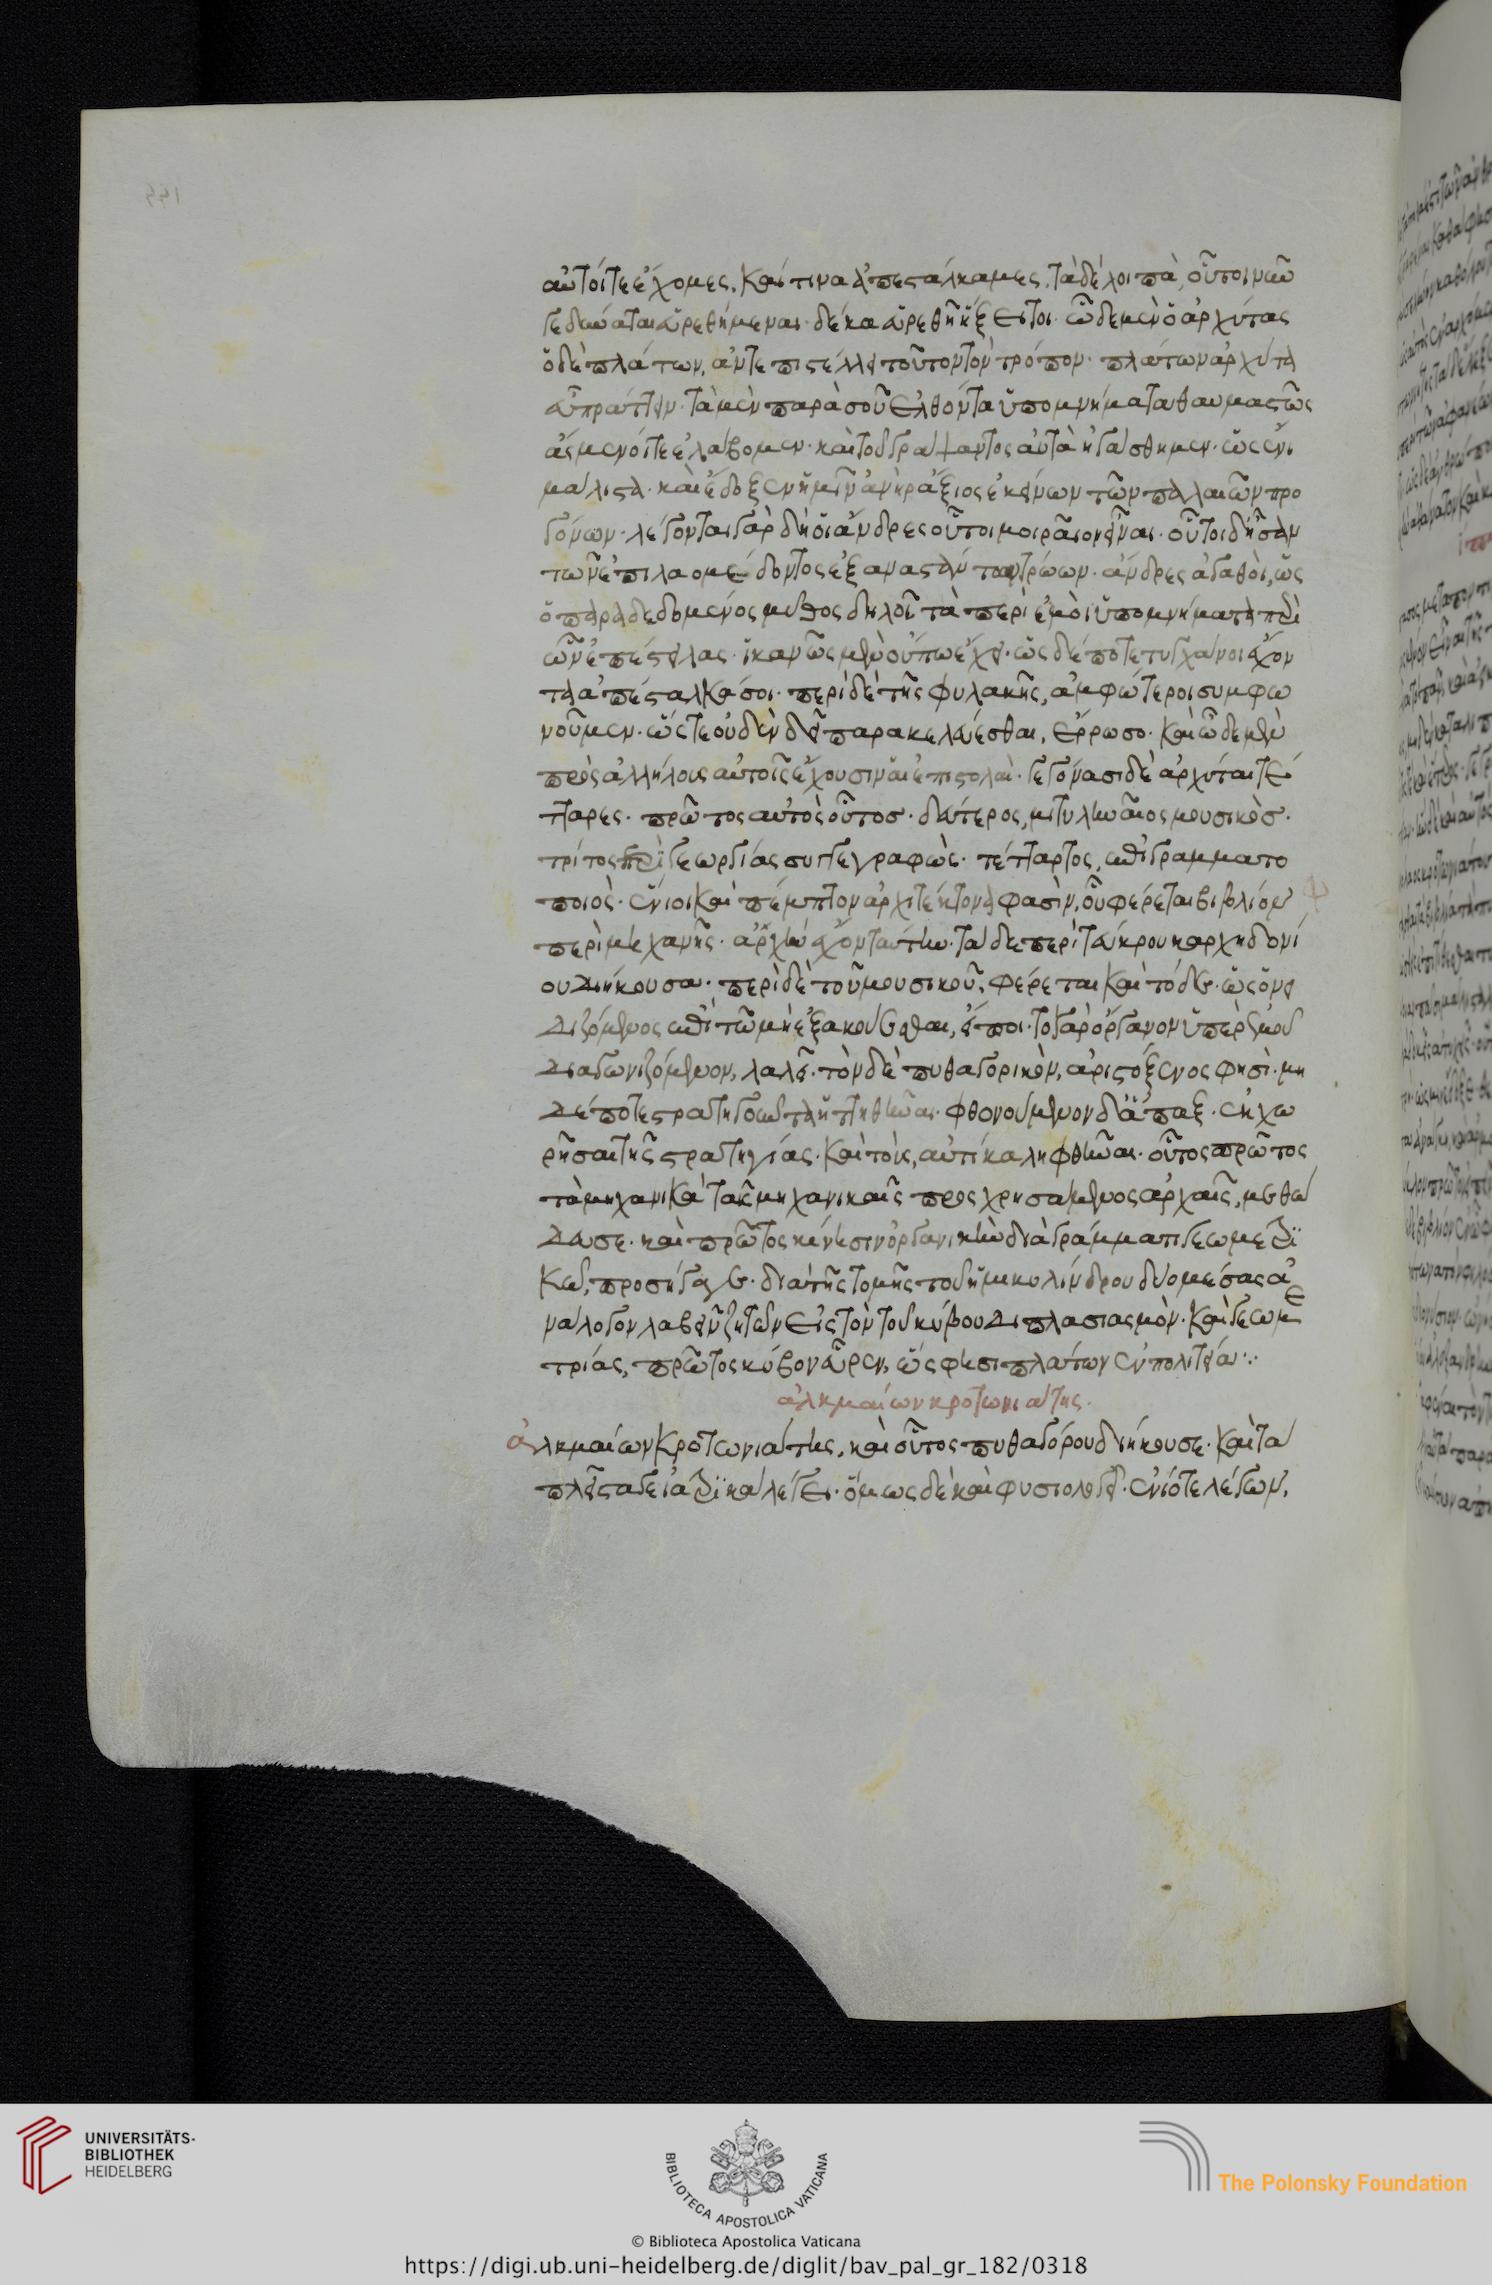 αὐτοί τε ἔχομες, καί τινα ἀπεστάλκαμες. τὰ δὲ λοιπὰ, οὔτοι νῦν
γε δύναται εὑρεθήμεναι· δέ κα εὑρεθῇ ἥξει τοι· ὧδε μὲν ὁ ἀρχύτας
ὁ δὲ πλάτων, ἀντεπιστέλλει τοῦτον τὸν τρόπον· πλάτων ἀρχύτα
εὖ πράττειν· τὰ μὲν παρὰ σοῦ ἐλθόντα ὑπομνήματα θαυμαστῶς
ἄσμενοί τε ἐλάβομεν· καὶ τοῦ γράψαντος αὐτὰ ἠγάσθημεν· ὡς ἔνι
μάλιστα· καὶ ἔδοξεν ἡμῖν ἀνὴρ ἄξιος ἐκείνων τῶν παλαιῶν προ
γόνων· λέγονται γὰρ δὴ οἱ ἄνδρες οὗτοι μοιραῖοι εἶναι· οὗτοι δ' ἦσαν
τῶν ἐπὶ λαομέδοντος ἐξαναστάντων τρώων· ἄνδρες ἀγαθοὶ, ὡς
ὁ παραδεδομένος μῦθος δηλοῖ τὰ περὶ ἐμοὶ ὑπομνήματα περὶ
ὧν ἐπέστειλας· ἱκανῶς μὲν οὔπω ἔχει· ὡς δέ ποτε τυγχάνοι ἔχον
τα ἀπέσταλκά σοι· περὶ δὲ τῆς φυλακῆς, ἀμφότεροι συμφω
νοῦμεν· ὥστε οὐδὲν δεῖ παρακελεύεσθαι, ἔρρωσο· καὶ ὧδε μὲν
πρὸς ἀλλήλους αὐτοῖς ἔχουσιν αἱ ἐπιστολαὶ· γεγόνασι δὲ ἀρχύται τέ
τταρες· πρῶτος αὐτὸς οὗτος· δεύτερος, μιτυληναῖος μουσικός·
τρίτος περὶ γεωργίας συγγεγραφὼς· τέτταρτος, ἐπιγραμματο
ποιὸς· ἔνιοι καὶ πέμπτον ἀρχιτέκτονά φασὶν, οὗ φέρεται βιβλίον
περὶ μηχανῆς· ἀρχὴν ἔχον ταύτην· τάδε περὶ τεύκρου καρχηδονί
ου διήκουσα· περὶ δὲ τοῦ μουσικοῦ, φέρεται καὶ τόδε· ὡς ὀνει
διζόμενος ἐπὶ τῷ μὴ ἐξακούεσθαι, εἴποι· τὸ γὰρ ὄργανον ὑπὲρ ἐμοῦ
διαγωνιζόμενον, λαλεῖ· τὸν δὲ πυθαγορικὸν, ἀριστόξενος φησὶ· μη
δέποτε στρατηγοῦντα ἡττηθῆναι· φθονούμενον δ' ἅπαξ· ἐκχω
ρῆσαι τῆς στρατηγίας· καὶ τοὺς, αὐτίκα ληφθῆναι· οὗτος πρῶτος
τὰ μηχανικὰ ταῖς μηχανικαῖς προσχρησάμενος ἀρχαῖς, μεθώ
δευσε· καὶ πρῶτος κίνησιν ὀργανικὴν διαγράμματι γεωμετρι
κῶ, προσήγαγε· διὰ τῆς τομῆς τοῦ ἡμικυλίνδρου δύο μέσας ἀ
νάλογον λαβεῖν ζητῶν εἰς τὸν τοῦ κύβου διπλασιασμὸν· καὶ γεωμε
τρίας, πρῶτος κύβον εὗρεν, ὥς φησι πλάτων ἐν πολιτείᾳ·:
ἀλκμαίων κροτωνιάτης.
ἀλκμαίων κροτωνιάτης, καὶ οὗτος πυθαγόρου διήκουσε· καὶ τὰ
πλεῖστά γε ἰατρικὰ λέγει· ὅμως δὲ καὶ φυσιολογεῖ· ἐνίοτε λέγων,
UNIVERSITÄTS-
BIBLIOTHEK
HEIDELBERG
BIBLIOTECA APOSTOLICA VATICANA
© Biblioteca Apostolica Vaticana
The Polonsky Foundation
https://digi.ub.uni-heidelberg.de/diglit/bav_pal_gr_182/0318